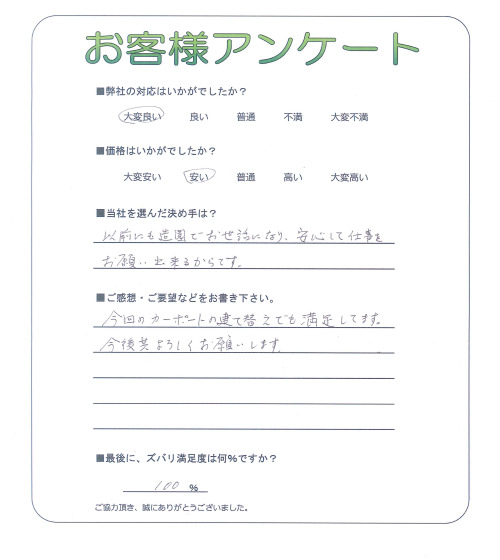 お客様アンケート
■弊社の対応はいかがでしたか？
大変良い 良い 普通 不満 大変不満
■価格はいかがでしたか？
大変安い 安い 普通 高い 大変高い
■当社を選んだ決め手は？
以前にも造園でお世話になり、安心して仕事を
お願い出来るからです。
■ご感想・ご要望などをお書き下さい。
今回のカーポートの建て替えでも満足してます。
今後共よろしくお願いします。
■最後に、ズバリ満足度は何％ですか？
100 %
ご協力頂き、誠にありがとうございました。